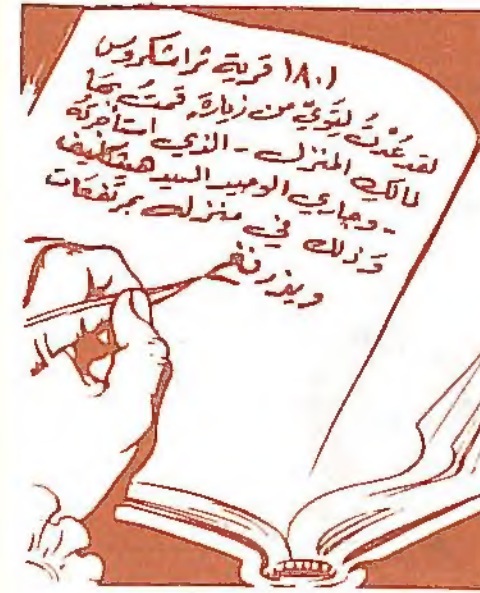 ١٨٠١ قرية ثراشكروس
لقد عُدْتُ لِتَوِّيَ من زيارة قمتُ بها
لمالكِ المنزل - الذي استأجرته
- وجاري الوحيد السيد هيثكليف
وَذلك في منزله بمرتَفعات
ويذرنغ